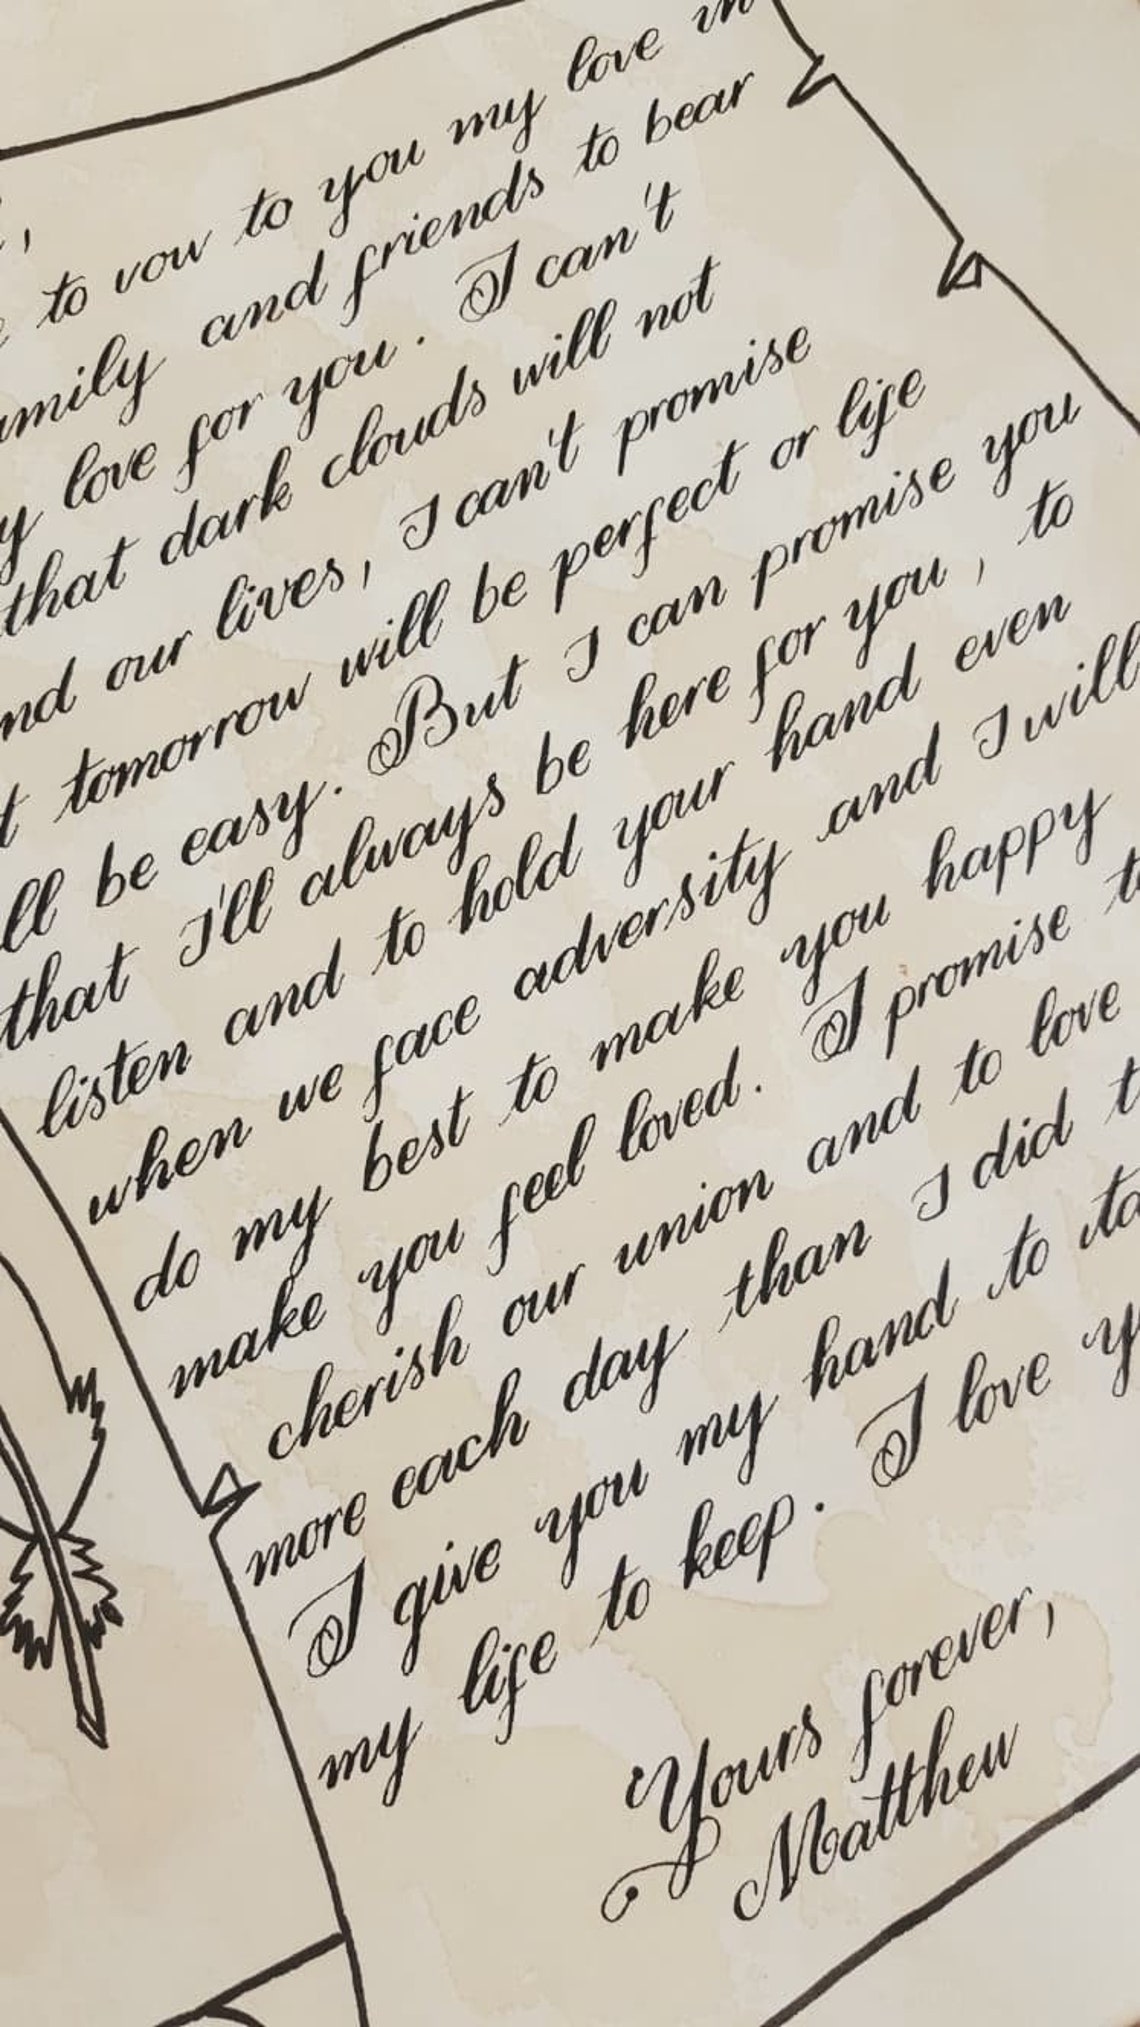 ,
to vow to you my love in
amily and friends to bear
y love for you. I can't
that dark clouds will not
nd our lives, I can't promise
t tomorrow will be perfect or life
ll be easy. But I can promise you
that I'll always be here for you, to
listen and to hold your hand even
when we face adversity and I will
do my best to make you happy
make you feel loved. I promise t
cherish our union and to love
more each day than I did t
I give you my hand to ta
my life to keep. I love y
Yours forever,
Matthew